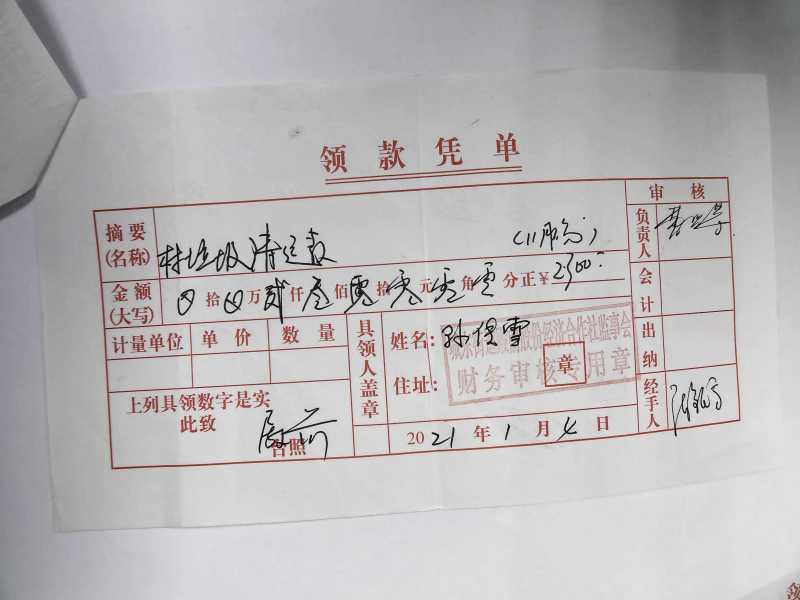 领款凭单
审核
摘要(名称) 村垃圾清运款 (11月份)
负责人
金额(大写) 0拾0万贰仟叁佰零拾零元零角零分正¥2300:
会计
计量单位 单价 数量
具领人盖章
姓名: 孙俊雪
住址:
股份经济合作社监事会
财务审核专用章
章
出纳
上列具领数字是实
此致
台照
2021年1月4日
经手人